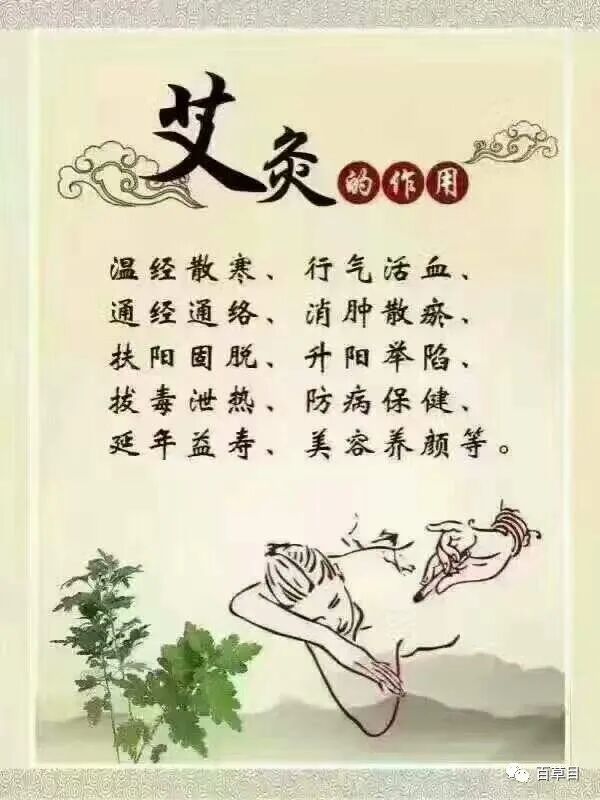 艾灸的作用
温经散寒、行气活血、
通经通络、消肿散瘀、
扶阳固脱、升阳举陷、
拔毒泄热、防病保健、
延年益寿、美容养颜等。
百草目